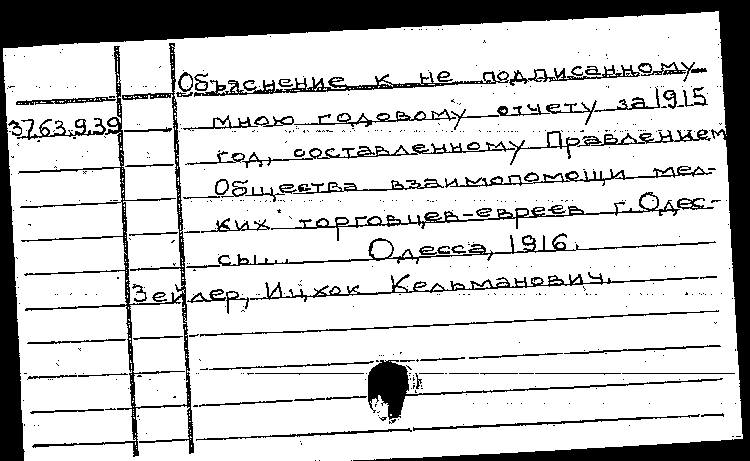 Объяснение к не подписанному
3763.9.39
мною годовому отчету за 1915
год, составленному Правлением
Общества взаимопомощи мел-
ких торговцев-евреев г. Одес-
сы... Одесса, 1916.
Зейлер, Ицхок Кельманович.